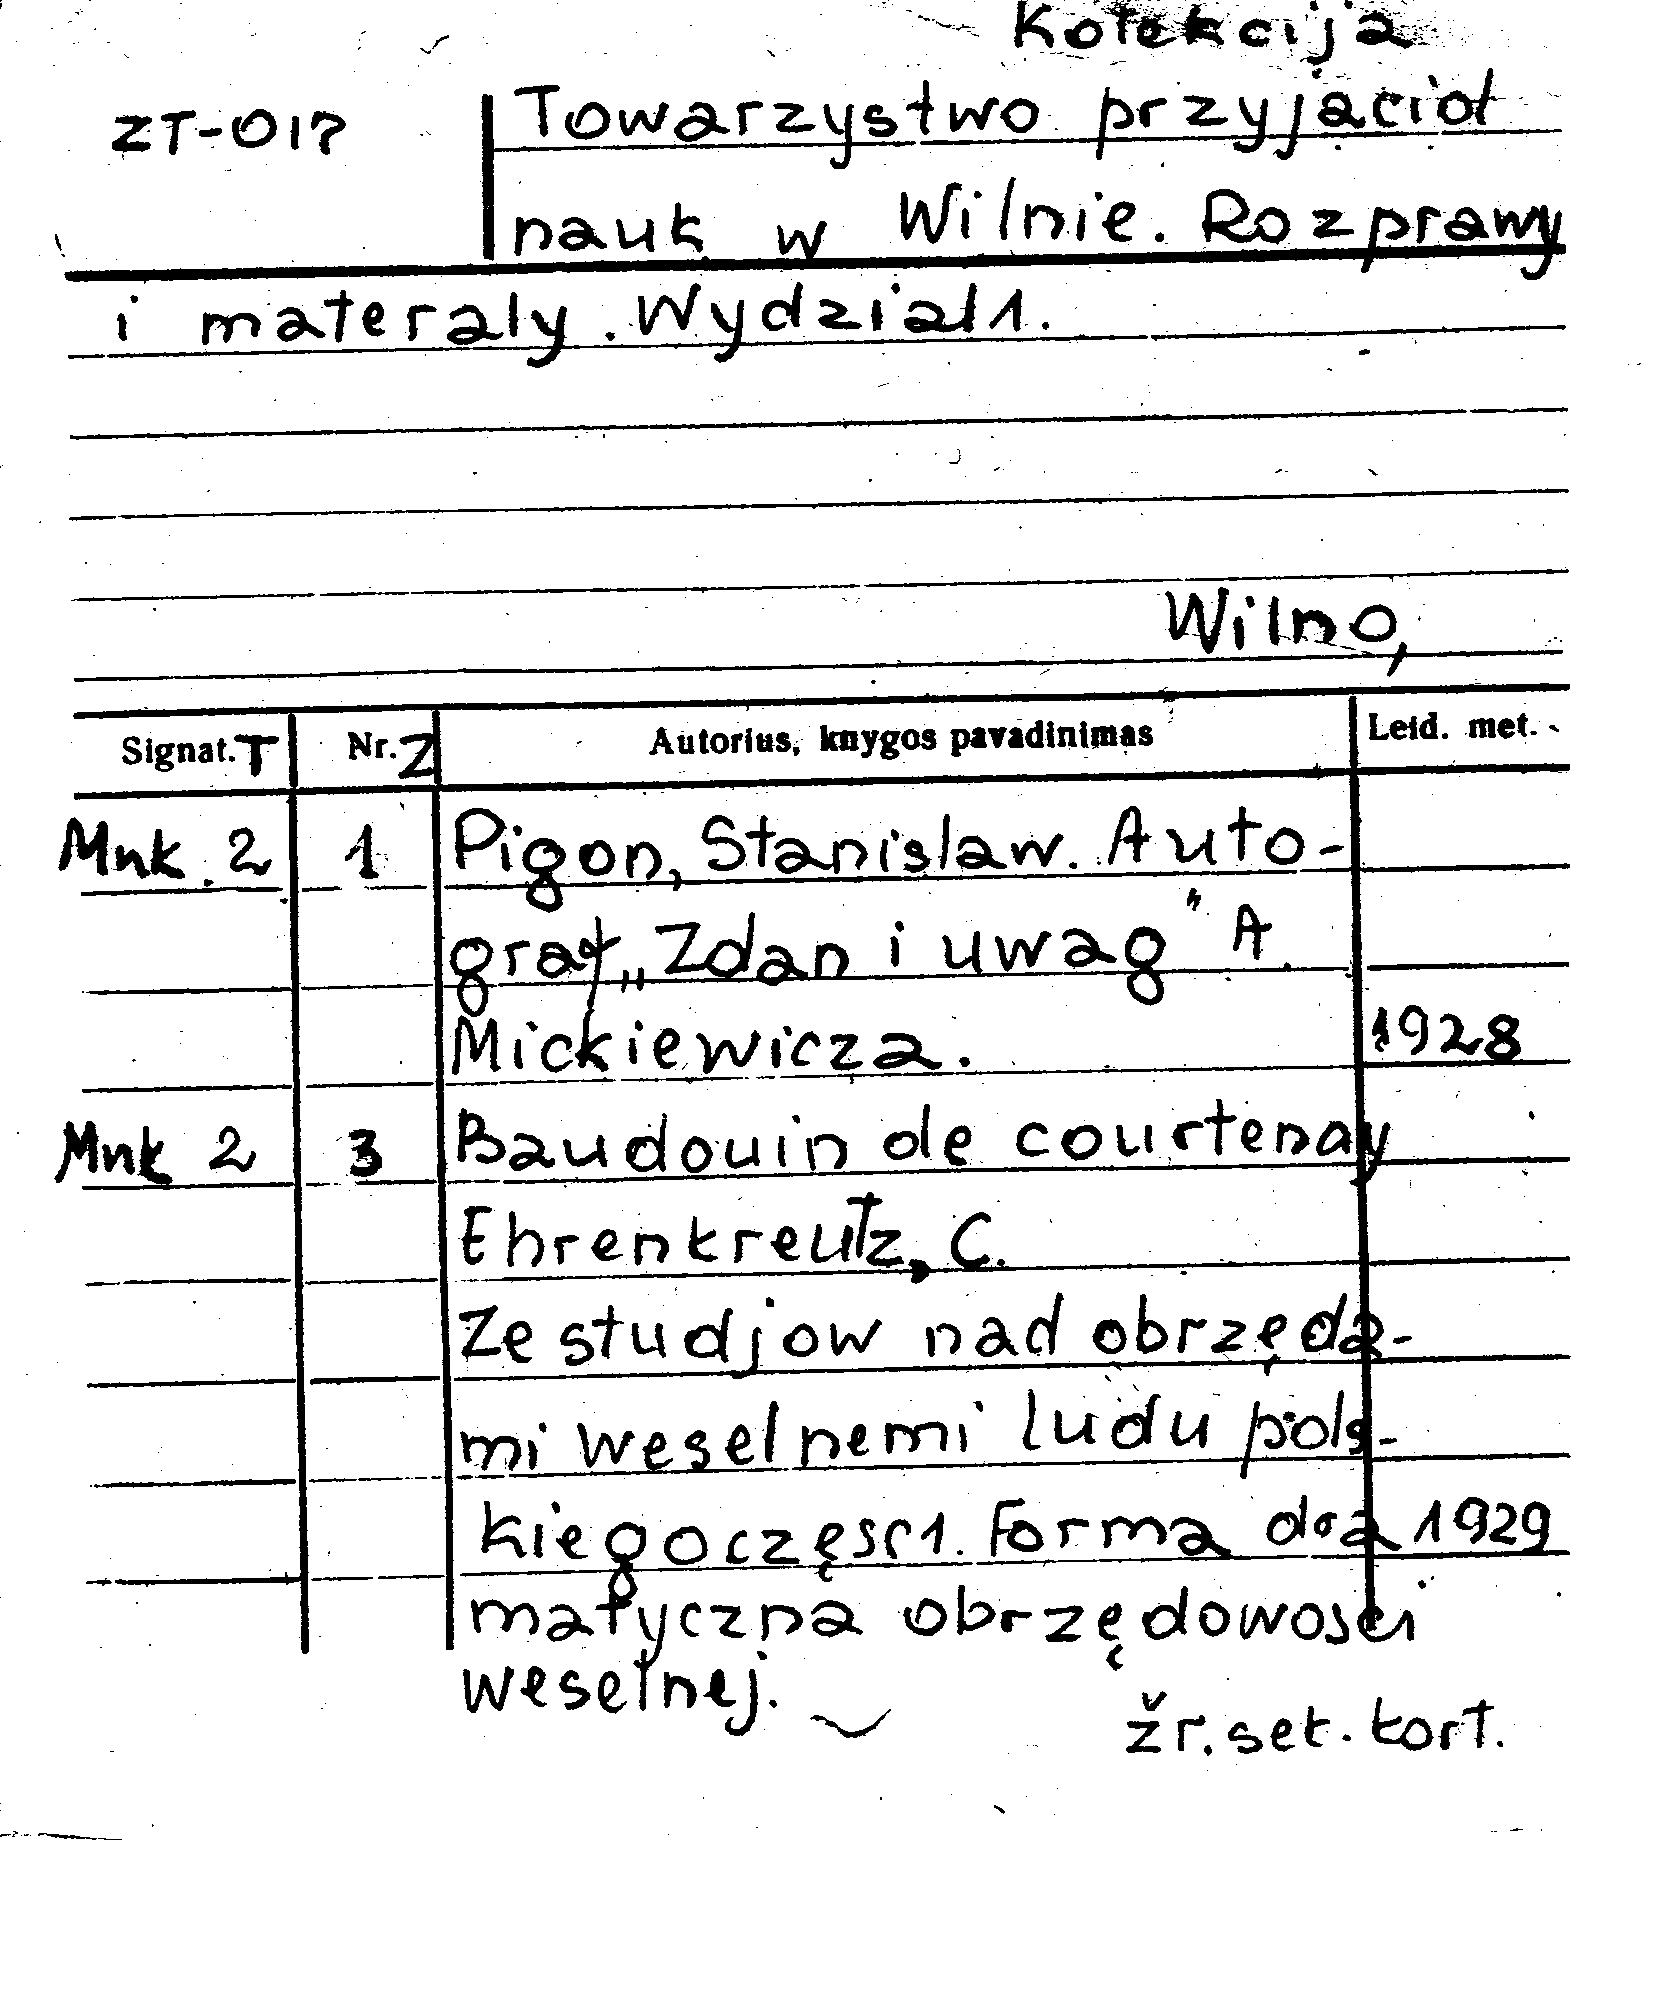 Kolekcija
ZT-017 Towarzystwo przyjaciol
nauk w Wilnie. Rozprawy
i materaly. Wydzial 1.
Wilno,
Signat. T Nr. Z Autorius, knygos pavadinimas Leid. met.
Mnk. 2 1 Pigon, Stanislaw. Auto-
graf „Zdan i uwag" A.
Mickiewicza. 1928
Mnk 2 3 Baudouin de courtenay
Ehrenkreutz, C.
Ze studjow nad obrzęda-
mi weselnemi ludu pols-
kiego częsc 1. Forma dra 1929
matyczna obrzędowosci
weselnej.
žr. sek. kort.